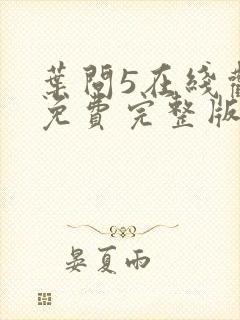 葉問5在綫
免費完整版
晏夏雨